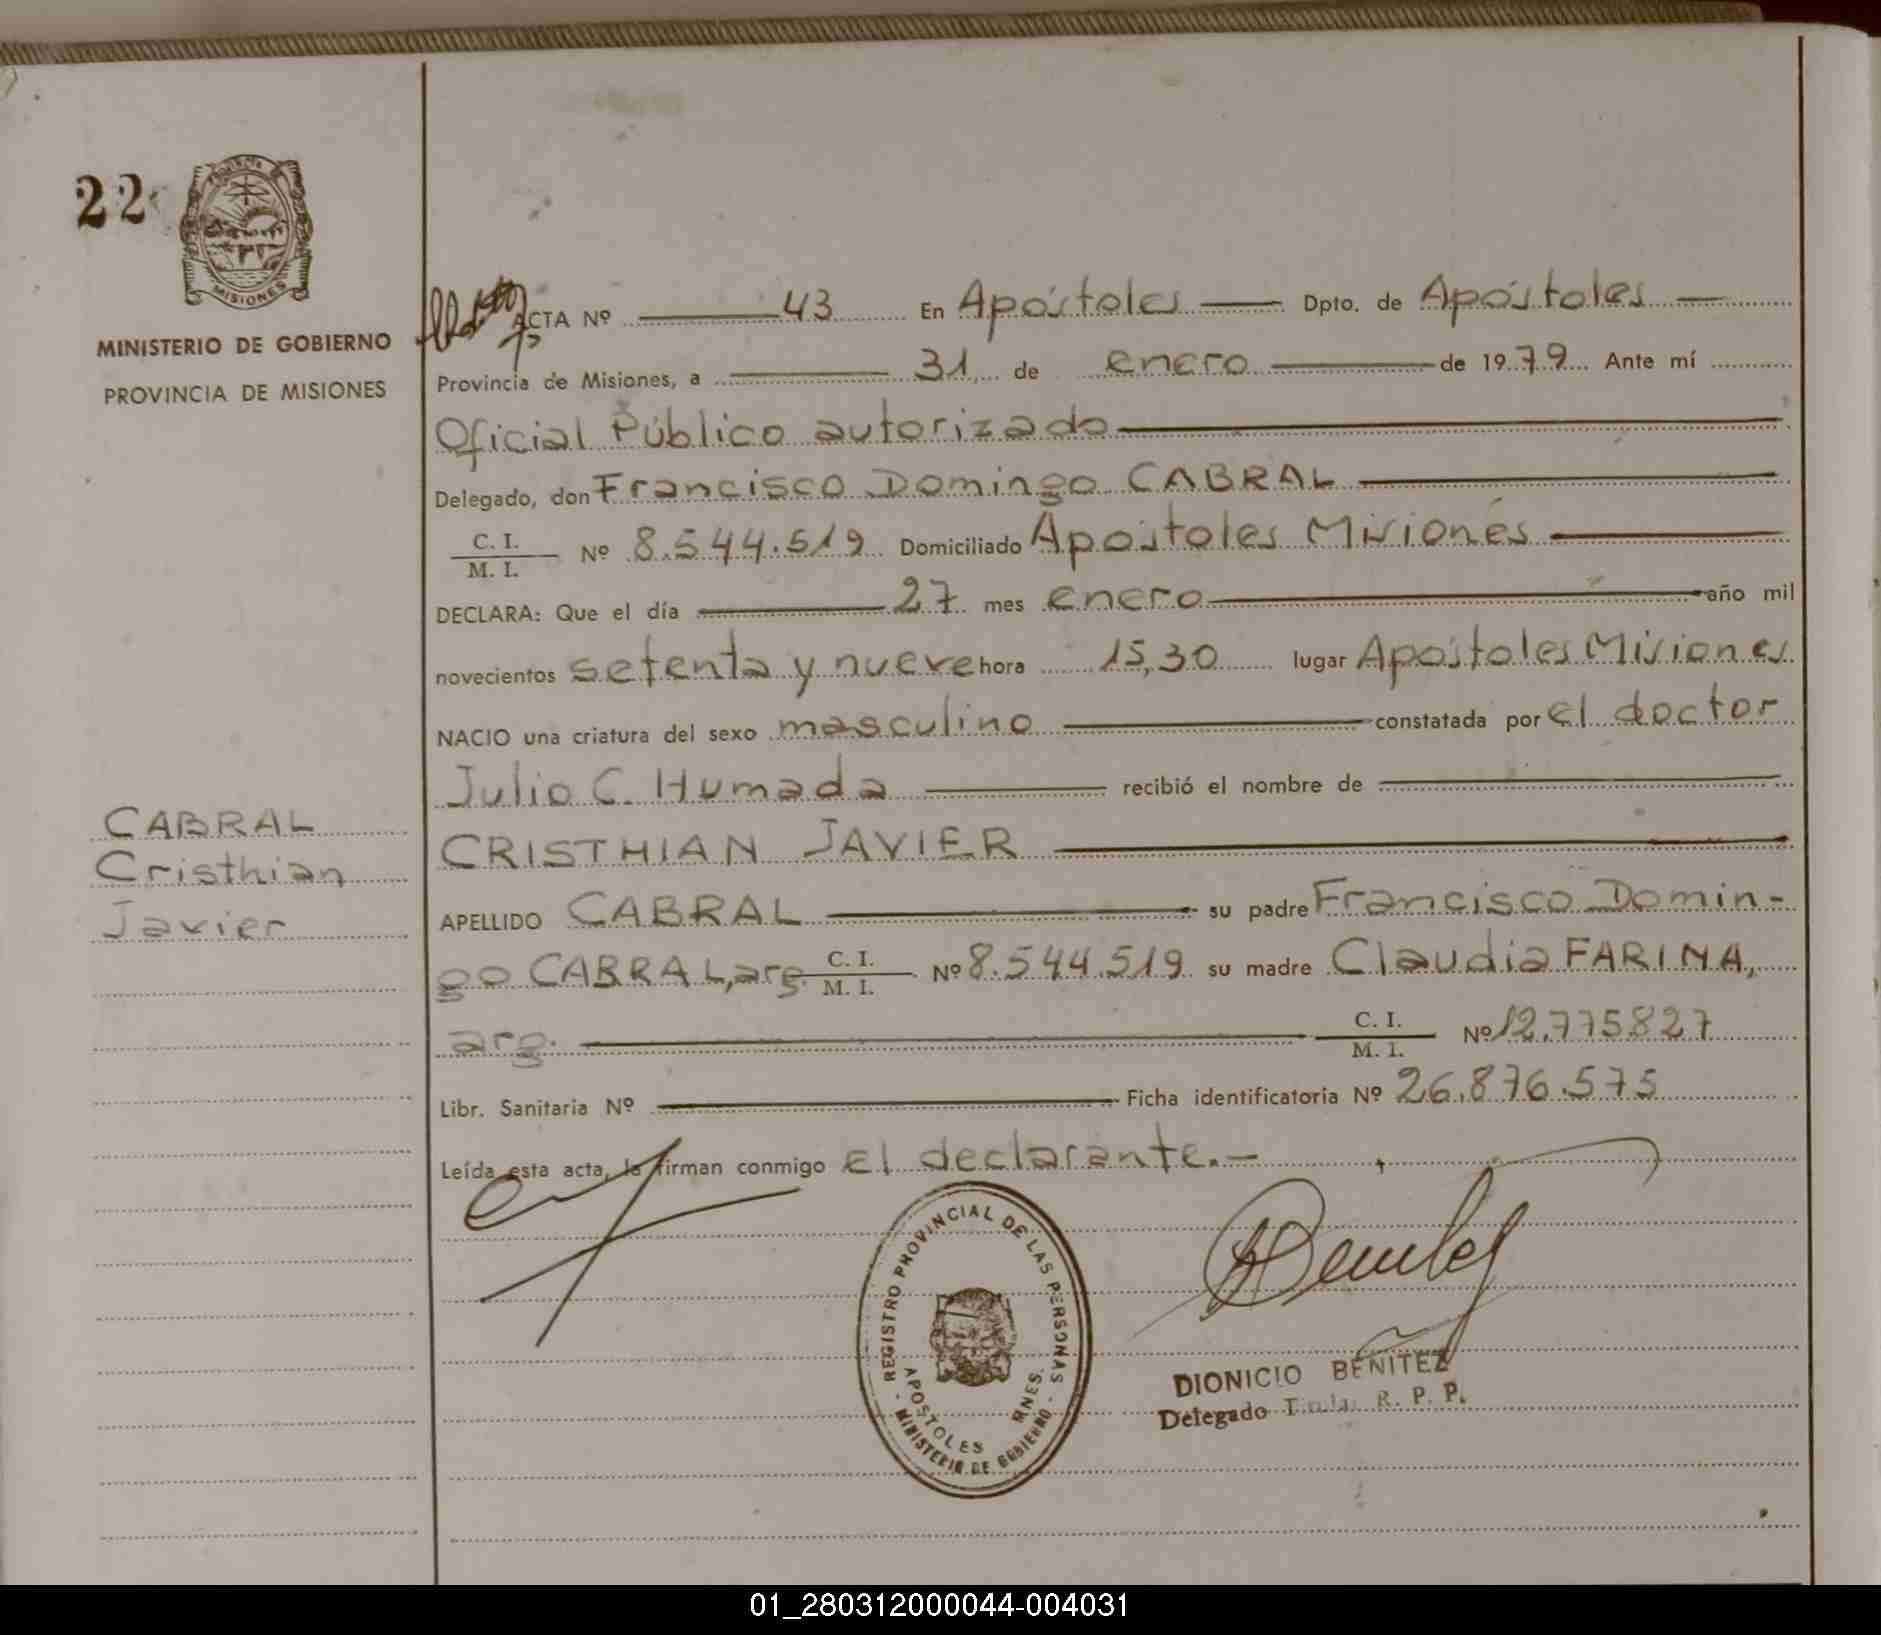 22
MISIONES
MINISTERIO DE GOBIERNO
PROVINCIA DE MISIONES
CABRAL
Cristhian
Javier
ACTA Nº 43 En Apóstoles Dpto. de Apóstoles
Provincia de Misiones, a 31 de enero de 1979 Ante mí
Oficial Público autorizado
Delegado, don Francisco Domingo CABRAL
C. I.
M. I. Nº 8.544.519 Domiciliado Apóstoles Misiones
DECLARA: Que el día 27 mes enero año mil
novecientos setenta y nueve hora 15,30 lugar Apóstoles Misiones
NACIO una criatura del sexo masculino constatada por el doctor
Julio C. Humada recibió el nombre de
CRISTHIAN JAVIER
APELLIDO CABRAL su padre Francisco Domin-
go CABRAL, arg. C. I. M. I. Nº 8.544.519 su madre Claudia FARINA,
arg. C. I. M. I. Nº 12.775827
Libr. Sanitaria Nº Ficha identificatoria Nº 26.876.575
Leída esta acta, la firman conmigo el declarante.-
REGISTRO PROVINCIAL DE LAS PERSONAS
APOSTOLES MNES.
- MINISTERIO DE GOBIERNO -
DIONICIO BENITEZ
Delegado R. P. P.
01_280312000044-004031